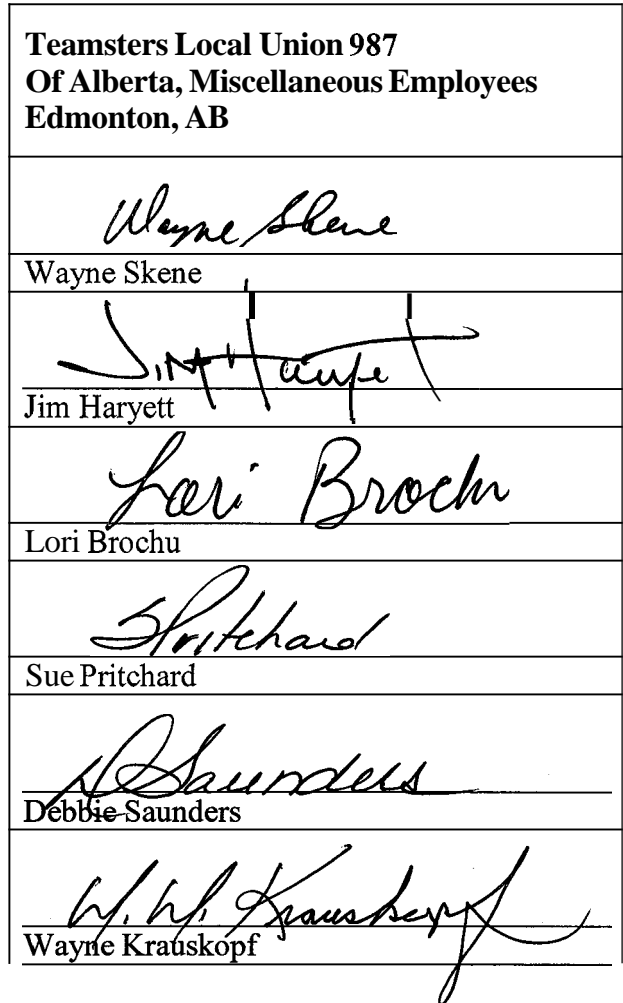 Teamsters Local Union 987
Of Alberta, Miscellaneous Employees
Edmonton, AB
Wayne Skene
Wayne Skene
Jim Haryett
Jim Haryett
Lori Brochu
Lori Brochu
S Pritchard
Sue Pritchard
D Saunders
Debbie Saunders
W. W. Krauskopf
Wayne Krauskopf